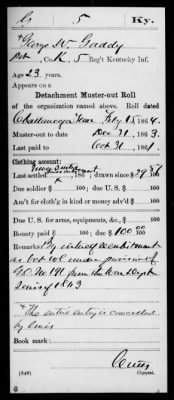 G 5 Ky.
George W. Gaddy
Pvt, Co. K, 5 Reg't Kentucky Inf.
Age 23 years.
Appears on a
Detachment Muster-out Roll
of the organization named above. Roll dated
Chattanooga Tenn Feby 18, 1864.
Muster-out to date Dec 31, 1863.
Last paid to Oct 31, 1863.
Clothing account:
Last settled , 186 ; drawn since $ 100
Due soldier $ 100; due U. S. $ 100
Am't for cloth'g in kind or money adv'd $ 100
Due U. S. for arms, equipments, &c., $ 100
Bounty paid $ 100; due $ 100 00/100
Remarks: By virtue of reenlistment
as Vet Vol under provision of
G.O. No 191 from the War Dept
Series of 1863
* The entire entry is cancelled
by lines
Book mark:
(949) Copyist.